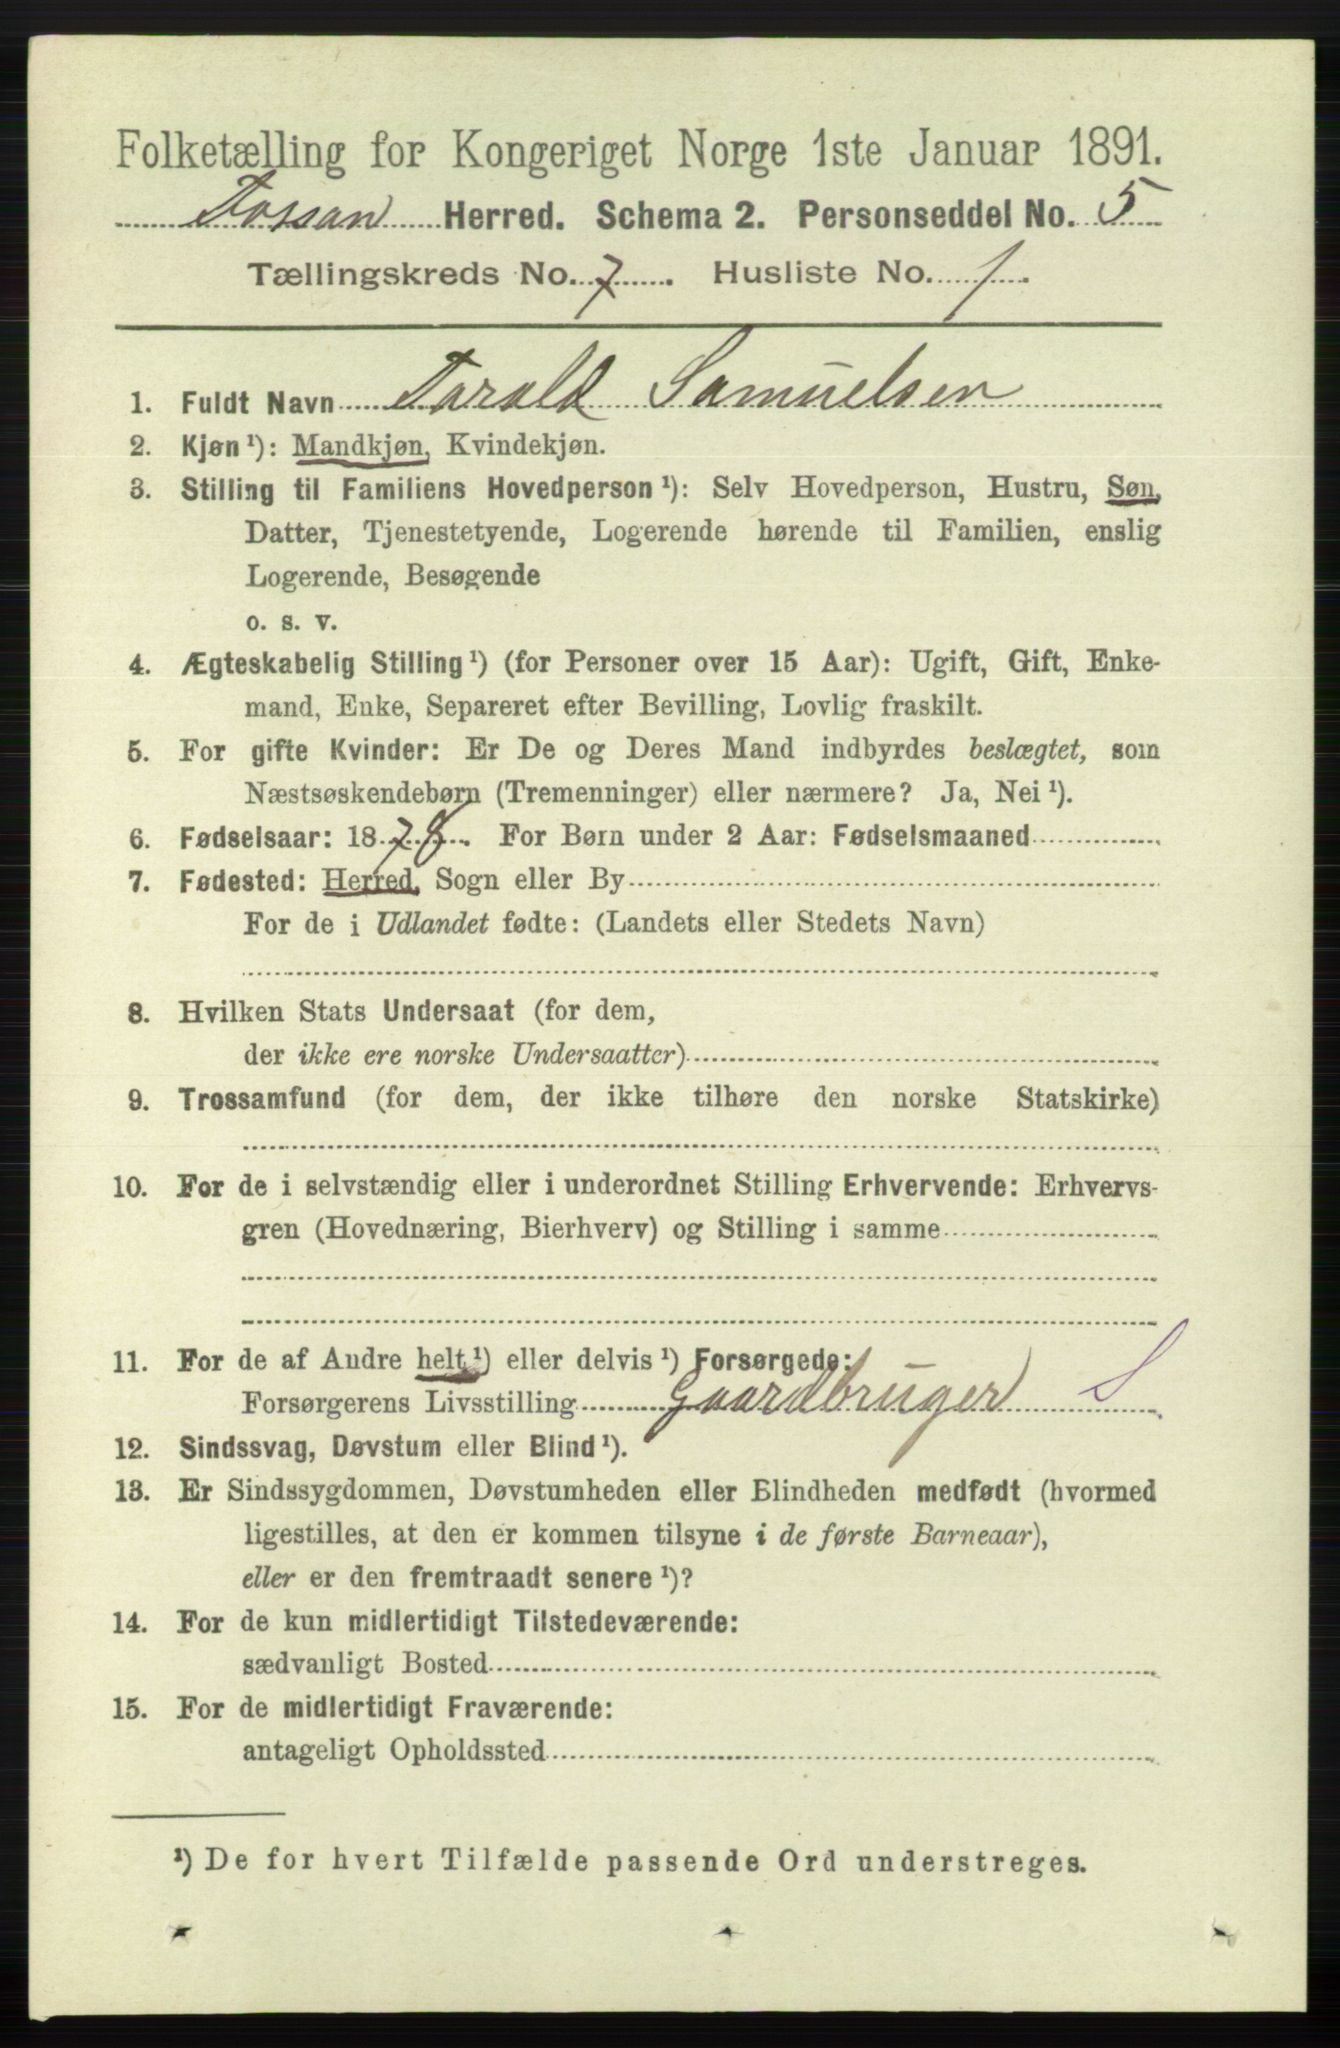 Folketælling for Kongeriget Norge 1ste Januar 1891.
Fossan Herred. Schema 2. Personseddel No. 5
Tællingskreds No. 7. Husliste No. 1
1. Fuldt Navn Tarald Samuelsen
2. Kjøn¹): Mandkjøn, Kvindekjøn.
3. Stilling til Familiens Hovedperson¹): Selv Hovedperson, Hustru, Søn,
Datter, Tjenestetyende, Logerende hørende til Familien, enslig
Logerende, Besøgende
o. s. v.
4. Ægteskabelig Stilling¹) (for Personer over 15 Aar): Ugift, Gift, Enke-
mand, Enke, Separeret efter Bevilling, Lovlig fraskilt.
5. For gifte Kvinder: Er De og Deres Mand indbyrdes beslægtet, som
Næstsøskendebørn (Tremenninger) eller nærmere? Ja, Nei¹).
6. Fødselsaar: 1878. For Børn under 2 Aar: Fødselsmaaned
7. Fødested: Herred, Sogn eller By
For de i Udlandet fødte: (Landets eller Stedets Navn)
8. Hvilken Stats Undersaat (for dem,
der ikke ere norske Undersaatter)
9. Trossamfund (for dem, der ikke tilhøre den norske Statskirke)
10. For de i selvstændig eller i underordnet Stilling Erhvervende: Erhvervs-
gren (Hovednæring, Bierhverv) og Stilling i samme
11. For de af Andre helt¹) eller delvis¹) Forsørgede:
Forsørgerens Livsstilling Gaardbruger S
12. Sindssvag, Døvstum eller Blind¹).
13. Er Sindssygdommen, Døvstumheden eller Blindheden medfødt (hvormed
ligestilles, at den er kommen tilsyne i de første Barneaar),
eller er den fremtraadt senere¹)?
14. For de kun midlertidigt Tilstedeværende:
sædvanligt Bosted
15. For de midlertidigt Fraværende:
antageligt Opholdssted
¹) De for hvert Tilfælde passende Ord understreges.